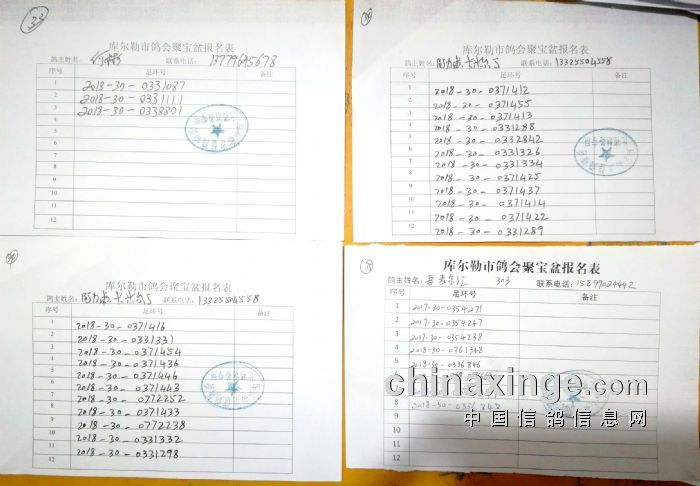 库尔勒市鸽会聚宝盆报名表
鸽主姓名: 联系电话: 13779645678
序号 足环号 备注
1 2018-30-0331087
2 2018-30-0331111
3 2018-30-0338801
4
5
6
7
8
9
10
11
12
库尔勒市鸽会聚宝盆报名表
鸽主姓名: 联系电话: 13325504558
序号 足环号 备注
1 2018-30-0371412
2 2018-30-0371455
3 2018-30-0371413
4 2018-30-0331288
5 2018-30-0332842
6 2018-30-0331326
7 2018-30-0331334
8 2018-30-0371425
9 2018-30-0371437
10 2018-30-0371414
11 2018-30-0371422
12 2018-30-0331289
库尔勒市鸽会聚宝盆报名表
鸽主姓名: 联系电话: 13325504558
序号 足环号 备注
1 2018-30-0371416
2 2018-30-0331331
3 2018-30-0371454
4 2018-30-0371436
5 2018-30-0371446
6 2018-30-0371443
7 2018-30-0772252
8 2018-30-0371433
9 2018-30-0772238
10 2018-30-0331332
11 2018-30-0331298
12
库尔勒市鸽会聚宝盆报名表
鸽主姓名: 303 联系电话: 15899024442
序号 足环号 备注
1 2017-30-0354271
2 2017-30-0354247
3 2017-30-0354238
4 2018-30-0761348
5 2018-30-0336846
8 2018-30-0331848
9
10
11
12
chinaxinge.com
中国信鸽信息网